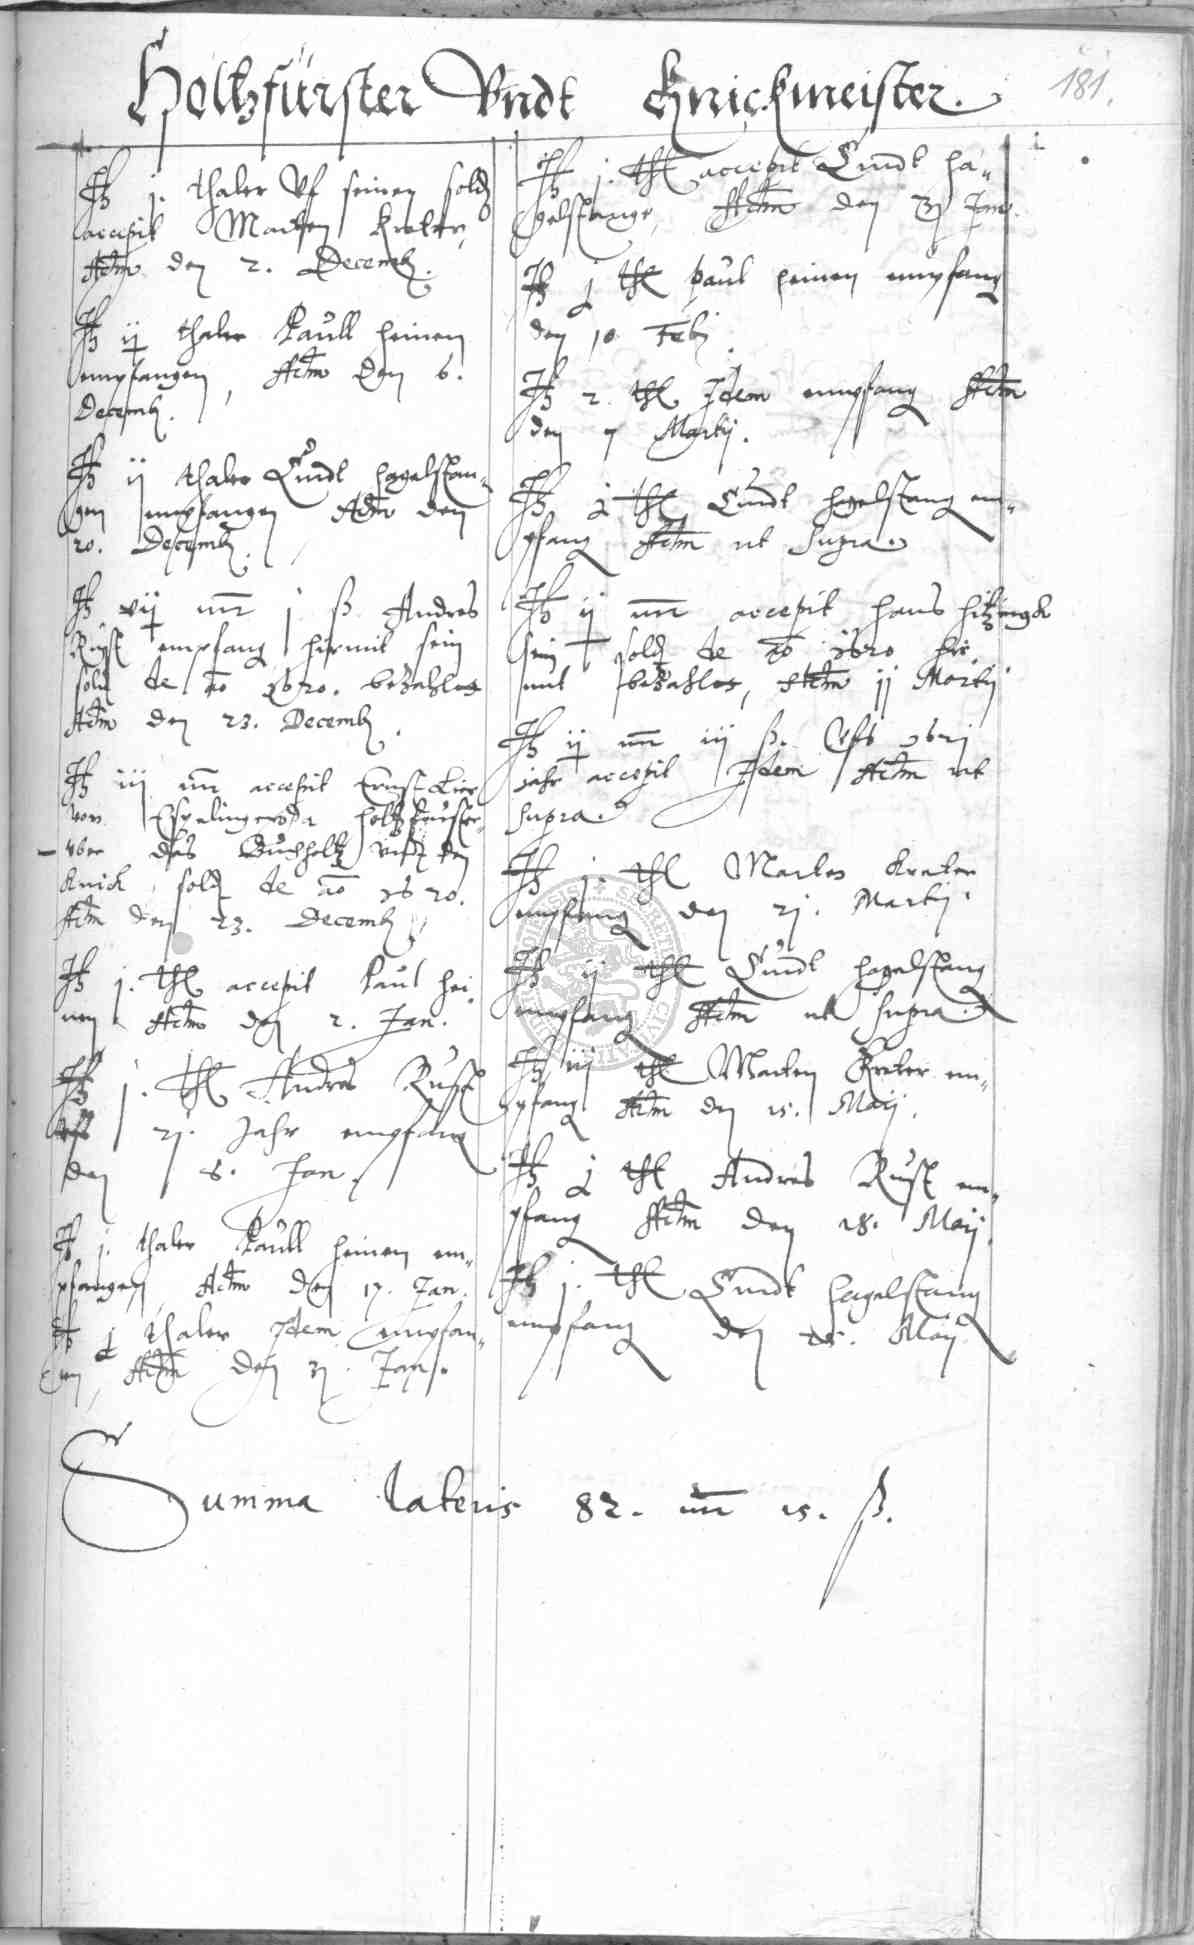 Holtzfürster Vndt Knickmeister.
181.
It j. thaler Vf seinen soldt
accepit Marten Kreter,
Actm den 2. Decemb.
It ij thaler Paull heinen
empfangen, Actm den 6.
Decemb.
It ij thaler Curdt hagelstan-
gen empfangen Actm den
20. Decemb.
It vij mr j ß. Andres
Rust empfang hirmit sein
soldt de ao 1620. bezahlet
Actm den 23. Decemb.
It iij mr accepit Ernst
von holtzfürster
vber das Buchholtz vndt den
Knick, soldt de ao 1620.
Actm den 23. Decemb.
It j. thl accepit Paul hei
nen Actm den 2. Jan.
It j. thl Andres Rust
vfs 21. Jahr empfang
den 8. Jan.
It j. thaler Paull heinen em-
pfangen, Actm den 17. Jan.
It j thaler Idem empfan-
gen, Actm den 31. Jan.
It j. thl accepit Curdt ha-
gelstange, Actm den 31 Jan.
It j thl paul heinen empfang
den 10 Feb
It 2. thl Idem empfang Actm
den 7 Martij.
It j thl Curdt hagelstang em-
pfang Actm ut Supra.
It ij mr accepit hans
sein soldt de ao 1620 hir
mit bezahlet, Actm ij Martij
It ij mr iij ß. Vfs 1621
jahr accepit Idem Actm ut
Supra.
It j. thl Marten Kreter
empfang den 21. Martij.
It ij thl Curdt hagelstang
empfang Actm ut Supra.
It iij thl Marten Kreter em-
pfang Actm den 15. Maij.
It j thl Andres Rust em-
pfang Actm den 18. Maij.
It j. thl Curdt hagelstang
empfang den Maij.
Summa lateris 82. mr 15. ß.